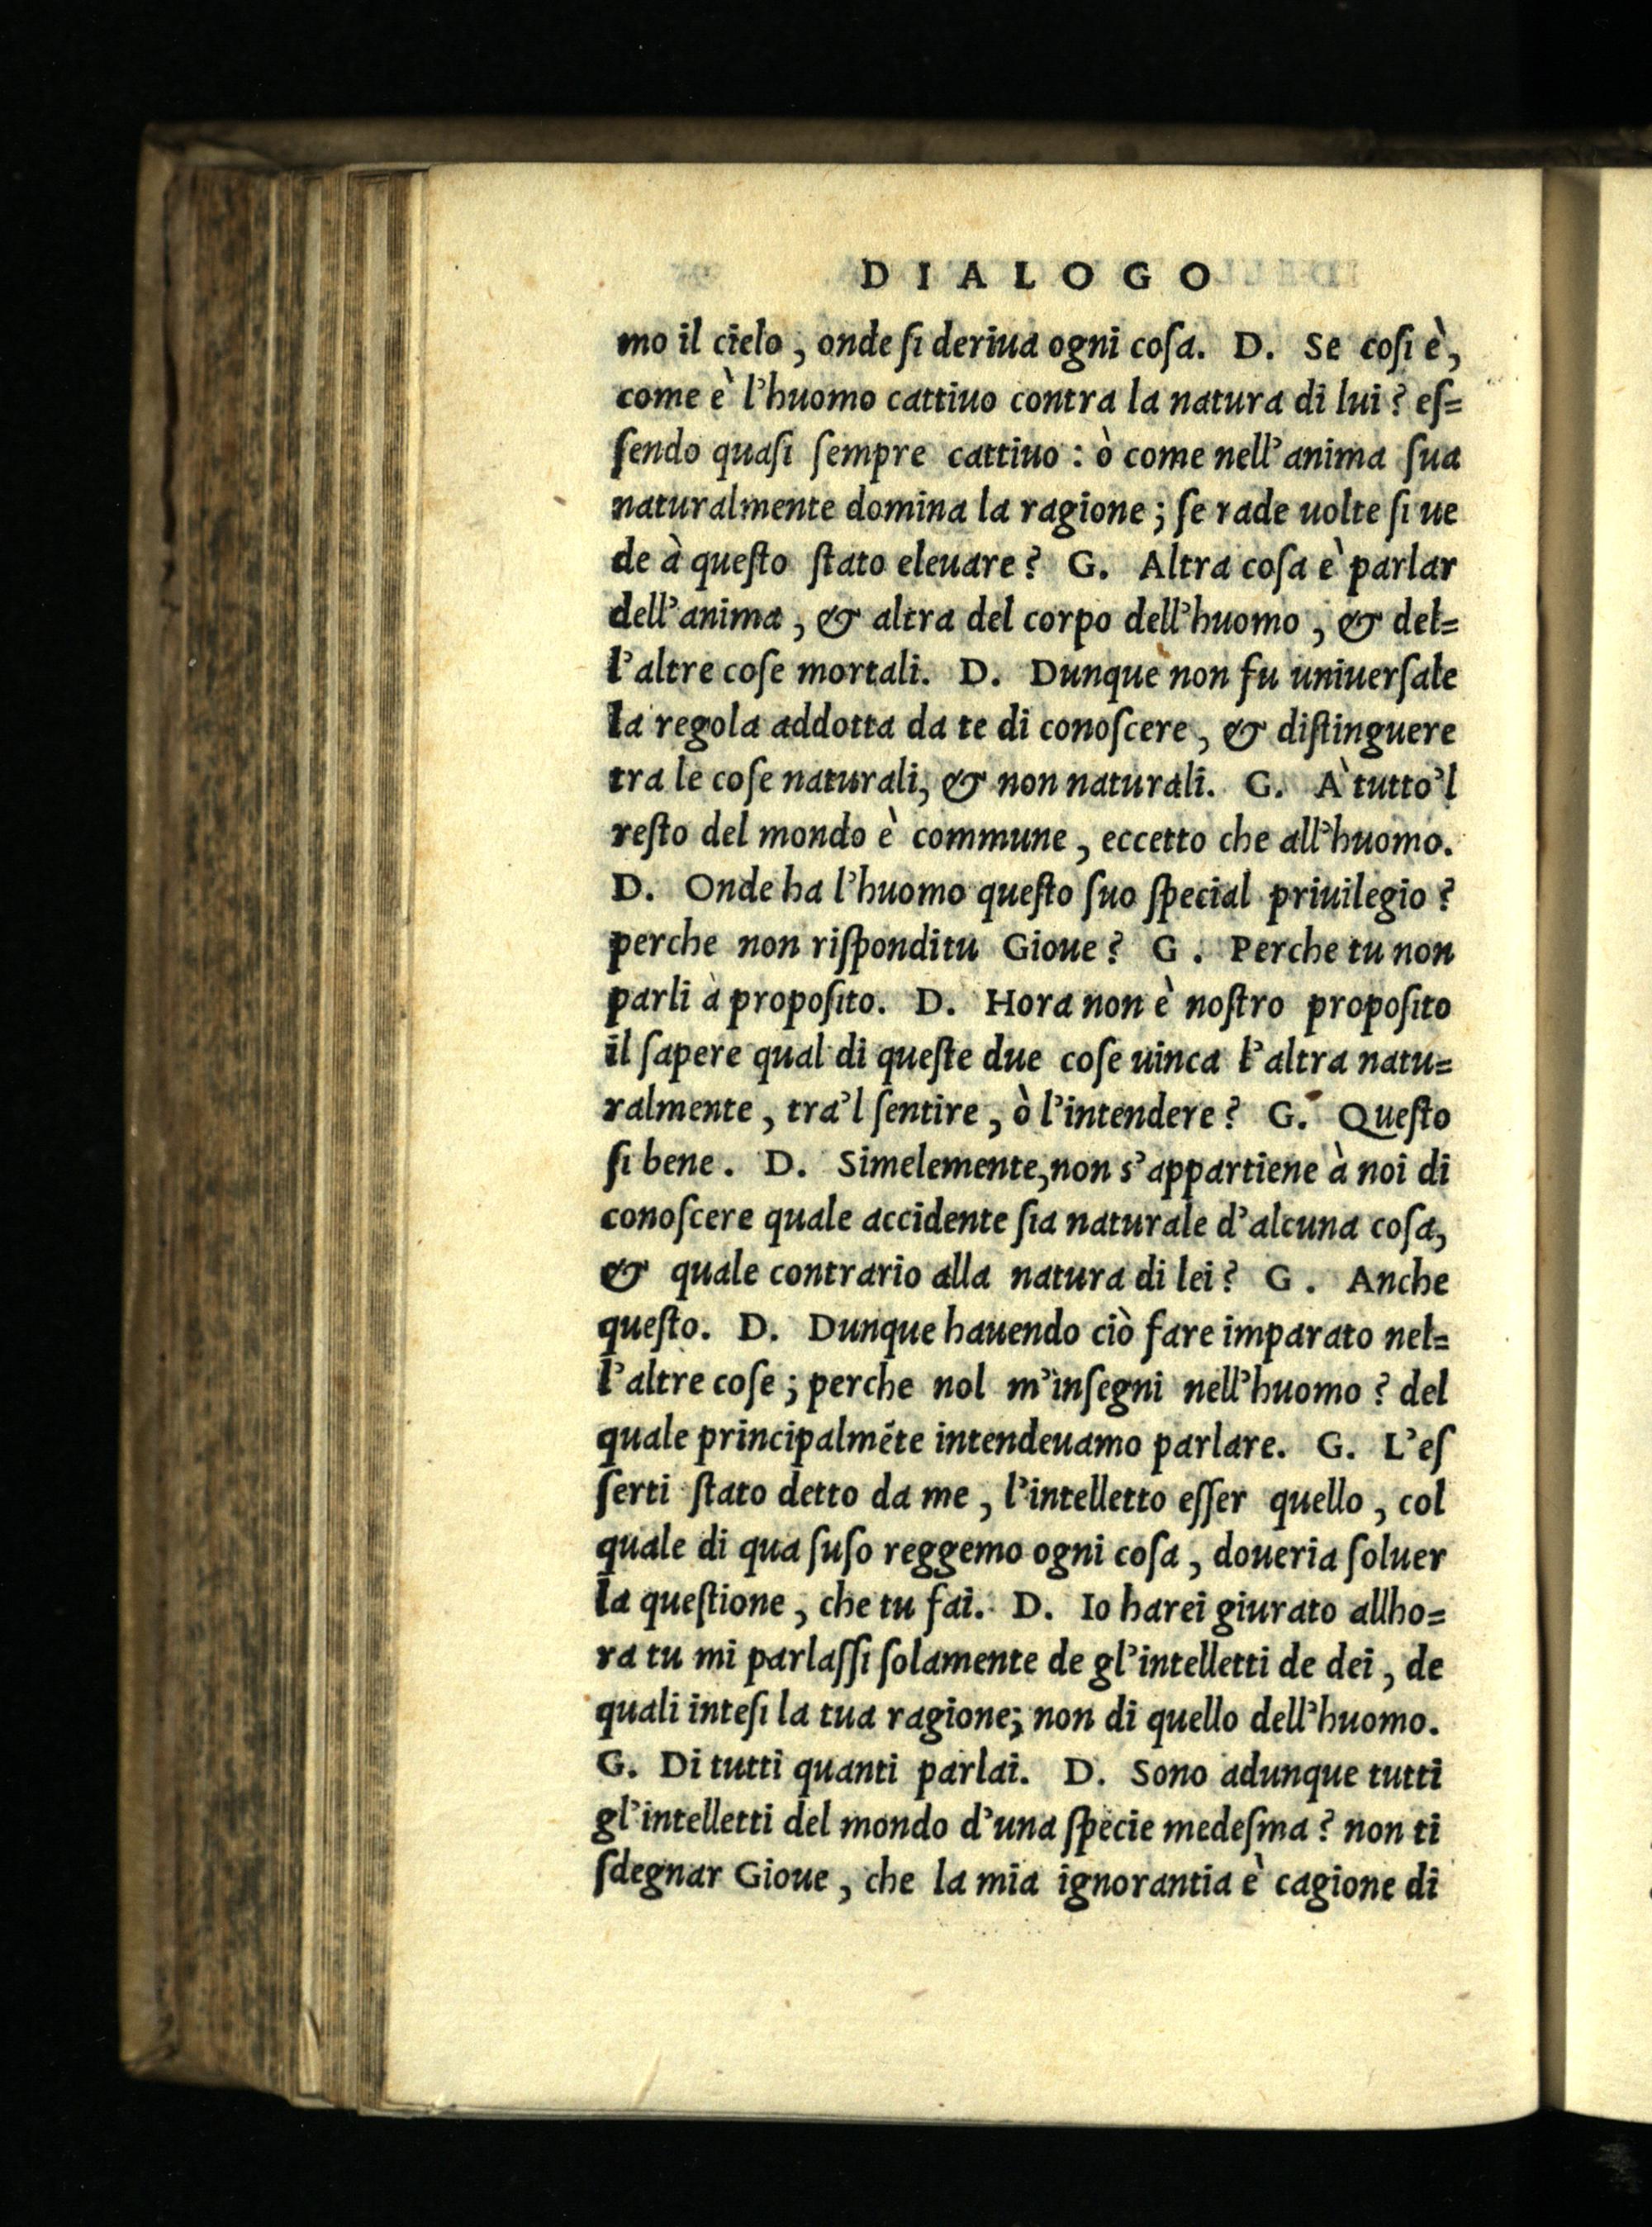 DIALOGO
mo il cielo, onde ſi deriua ogni coſa. D. Se coſi è,
come è l'huomo cattiuo contra la natura di lui? eſ=
ſendo quaſi ſempre cattiuo: ò come nell'anima ſua
naturalmente domina la ragione; ſe rade uolte ſi ue
de à queſto ſtato eleuare? G. Altra coſa è parlar
dell'anima, & altra del corpo dell'huomo, & del=
l'altre coſe mortali. D. Dunque non fu uniuerſale
la regola addotta da te di conoſcere, & diſtinguere
tra le coſe naturali, & non naturali. G. À tutto'l
reſto del mondo è commune, eccetto che all'huomo.
D. Onde ha l'huomo queſto ſuo ſpecial priuilegio?
perche non riſponditu Gioue? G. Perche tu non
parli à propoſito. D. Hora non è noſtro propoſito
il ſapere qual di queſte due coſe uinca l'altra natu=
ralmente, tra'l ſentire, ò l'intendere? G. Queſto
ſi bene. D. Simelemente, non s'appartiene à noi di
conoſcere quale accidente ſia naturale d'alcuna coſa,
& quale contrario alla natura di lei? G. Anche
queſto. D. Dunque hauendo ciò fare imparato nel=
l'altre coſe; perche nol m'inſegni nell'huomo? del
quale principalmẽte intendeuamo parlare. G. L'eſ
ſerti ſtato detto da me, l'intelletto eſſer quello, col
quale di qua ſuſo reggemo ogni coſa, doueria ſoluer
la queſtione, che tu fai. D. Io harei giurato allho=
ra tu mi parlaſſi ſolamente de gl'intelletti de dei, de
quali inteſi la tua ragione; non di quello dell'huomo.
G. Di tutti quanti parlai. D. Sono adunque tutti
gl'intelletti del mondo d'una ſpecie medeſma? non ti
ſdegnar Gioue, che la mia ignorantia è cagione di